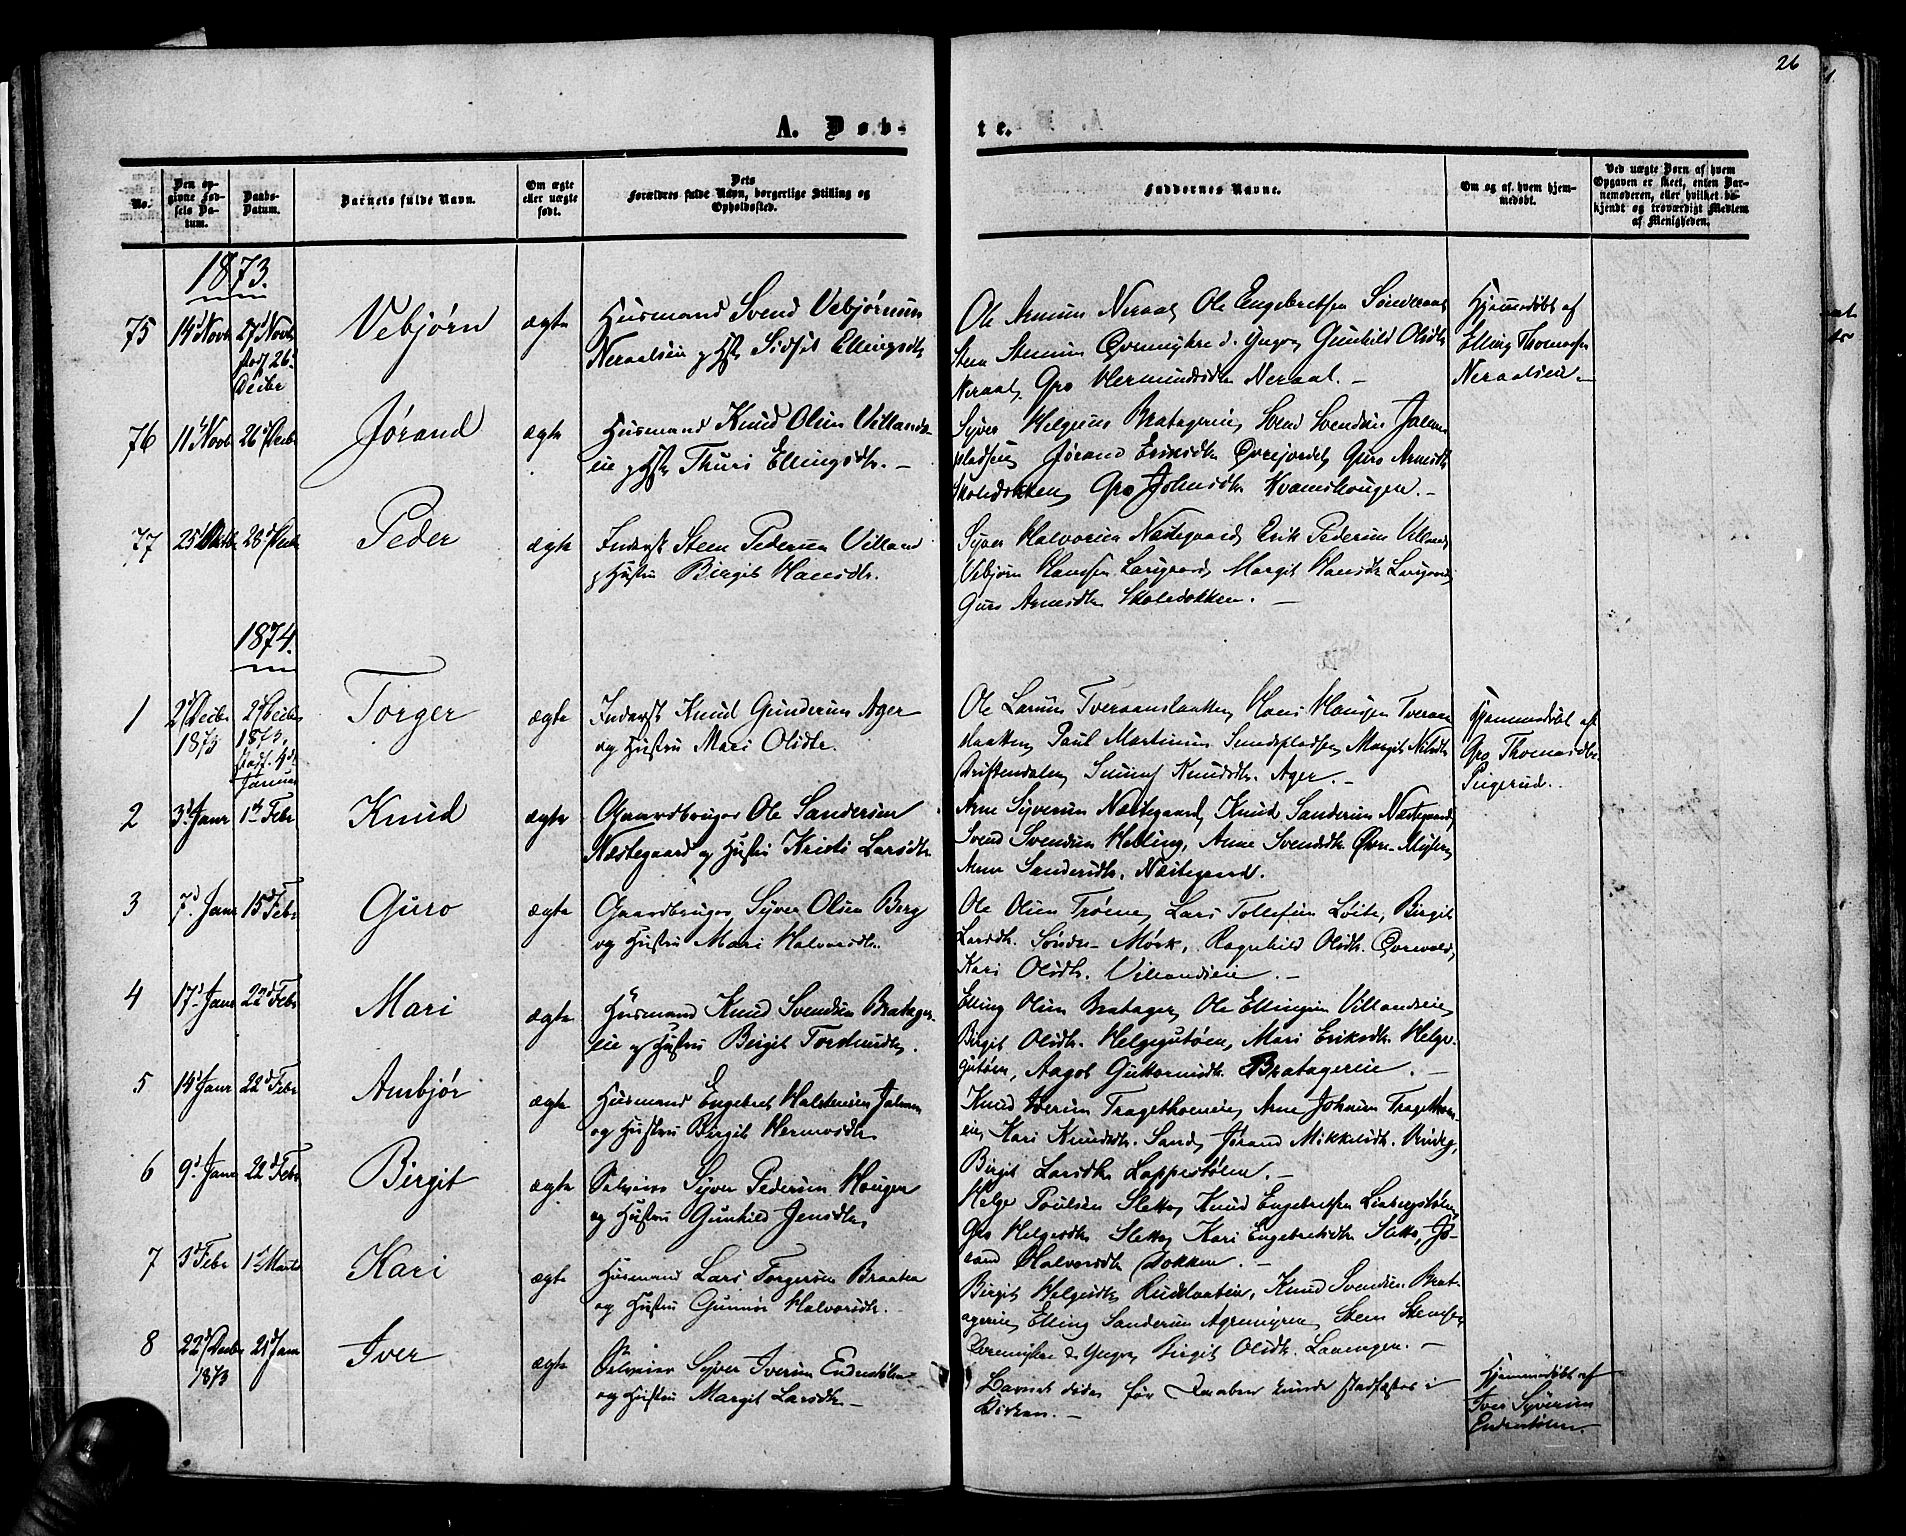 26
A. Døb-
te.
No.
Den opgivne Fødsels Datum.
Daabs-Datum.
Barnets fulde Navn.
Om ægte eller uægte født.
Dets Forældres fulde Navn, borgerlige Stilling og Opholdssted.
Faddernes Navne.
Om og af hvem hjemmedøbt.
Ved uægte Børn af hvem Opgaven er skeet, enten Barnemoderen, eller hvilket bekjendt og troværdigt Medlem af Menigheden.
1873.
75 14d Novb 27d Novb 26d Decbr Vebjørn ægte Husmand Svend Vebjørnsen
Neraalseie Sidsel Ellingsdtr
Ole Arnesen Neraal, Ole Engebretsen Sønderaal
Sten Stensen Øvremyhre d. Yngre, Gunhild Olsdtr
Neraal, Gro Hermundsdtr Neraal. –
Hjemmedøbt af
Elling Thomassen
Neraalseie –
76 11d Novb 26d Decbr Jørand ægte Husmand Knud Olsen Villands-
eie Thuri Ellingsdtr. –
Syver Helgesen Bratagereie, Svend Svendsen Jalmn
pladsen, Jørand Eriksdtr Øvrejordet, Guro Arnesdtr
Skoledokken, Gro Johnsdtr Kvamshougen. –
77 28d Decbr Peder ægte Inderst Steen Pedersen Villand
og Hustru Birgit Hansdtr.
Syver Halvorsen Næstegaard, Erik Pedersen Villand,
Vebjørn Hansen Larsgaard, Margit Hansdtr Larsgaard,
Guro Arnesdtr Skoledokken. –
1874.
1 2d Decbr 1873 Torger ægte Inderst Knud Gundersen Ager
og Hustru Mari Olsdtr.
Ole Larsen Tveraanslaatten, Hans Hansen Tveraan
slaatten, Paul Martinsen Sundspladsen, Margit Nilsdtr
Ager. –
Hjemmedøbt af
Gro Thomasdtr
2 3d Janr 1ste Febr Knud ægte Gaardbruger Ole Sandersen
Næstegaard og Hustru Kristi Larsdtr
Arne Syversen Næstegaard, Knud Sandersen Næstegaard,
Svend Svendsen Helling, Anne Svendsdtr Øvre-
Anne Sandersdtr. Næstegaard.
3 7d Janr 15d Febr Guro ægte Gaardbruger Syver Olsen Berg
og Hustru Mari Halvorsdtr.
Ole Olsen Trøene, Lars Tollefsen Løite, Birgit
Larsdtr. Søndre-Mørk, Ragnhild Olsdtr. Øvrevold,
Kari Olsdtr. Villandseie. –
4 17d Janr 22d Febr Mari ægte Husmand Knud Svendsen Bratager-
eie og Hustru Birgit
Elling Olsen Bratager, Ole Ellingsen Villandseie,
Birgit Olsdtr. Helgegutøen, Mari Eriksdtr. Helge-
gutøen, Aagot Guttormsdtr. Bratagereie. –
5 14d Janr 22d Febr Ambjør ægte Husmand Engebret Halstensen
og Hustru Birgit
Knud Iversen Tragethoneie, Arne Johnsen Tragethon-
eie, Kari Knudsdtr. Sand, Jørand Mikkelsdtr.
Birgit Larsdtr Lappestølen. –
6 9d Janr 22d Febr Birgit ægte Selveier Syver Pedersen Hougen
og Hustru Gunhild Jensdtr,
Helge Poulsen Sletto, Knud Engebretsen
Gro Helgesdtr Sletto, Kari Engebretsdtr Sletto, Jø-
rand Halvorsdtr Dokken. –
7 3d Febr 1ste Marts Kari ægte Husmand Lars Torgersen Braaten
og Hustru Gunnor Halvorsdtr. –
Birgit Helgesdtr Knud Svendsen Brat-
agereie, Elling Sandersen Sten Stensen
Øvremyhre d. Yngre, Birgit Olsdtr.
8 22d Decbr 1873 Iver ægte Selveier Syver Iversen Endrestølen
og Hustru Margit Larsdtr –
Barnet døde før Daaben kunde stadfæstes i
Kirken. –
Hjemmedøbt af
Iver Syversen
Endrestølen.